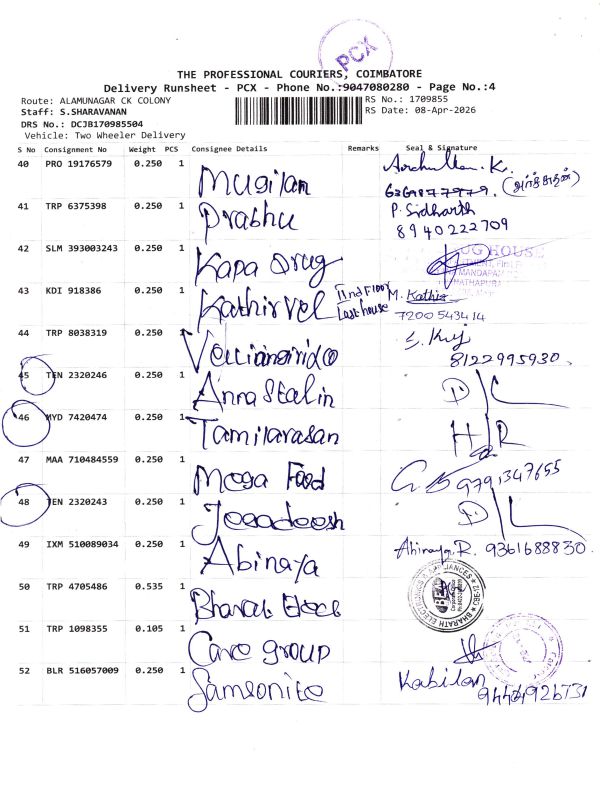 PCX
THE PROFESSIONAL COURIERS, COIMBATORE
Delivery Runsheet - PCX - Phone No.:9047080280 - Page No.:4
Route: ALAMUNAGAR CK COLONY
RS No.: 1709855
Staff: S.SHARAVANAN
RS Date: 08-Apr-2026
DRS No.: DCJB170985504
Vehicle: Two Wheeler Delivery
S No Consignment No Weight PCS Consignee Details Remarks Seal & Signature
40 PRO 19176579 0.250 1 Mugilan
(அர்ச்சுதன்)
41 TRP 6375398 0.250 1 Prabhu P. Sidharth
8940222709
42 SLM 393003243 0.250 1 Kapa Drug
UG HOUSE
43 KDI 918386 0.250 1 Kathirvel IInd Floor M. Kathir
Last house 7200543414
44 TRP 8038319 0.250 1
8122995930
45 TEN 2320246 0.250 1 Anna Stalin D/C
46 MYD 7420474 0.250 1 Tamilarasan H/R
47 MAA 710484559 0.250 1 Mega Food 9791347655
48 TEN 2320243 0.250 1 D/L
49 IXM 510089034 0.250 1 Abinaya Abinaya.R. 9361688830
50 TRP 4705486 0.535 1 Bharat Elec
BHARATH ELECTRONICS & APPLIANCES
51 TRP 1098355 0.105 1 Care group
52 BLR 516057009 0.250 1 Samsonite Kabilan